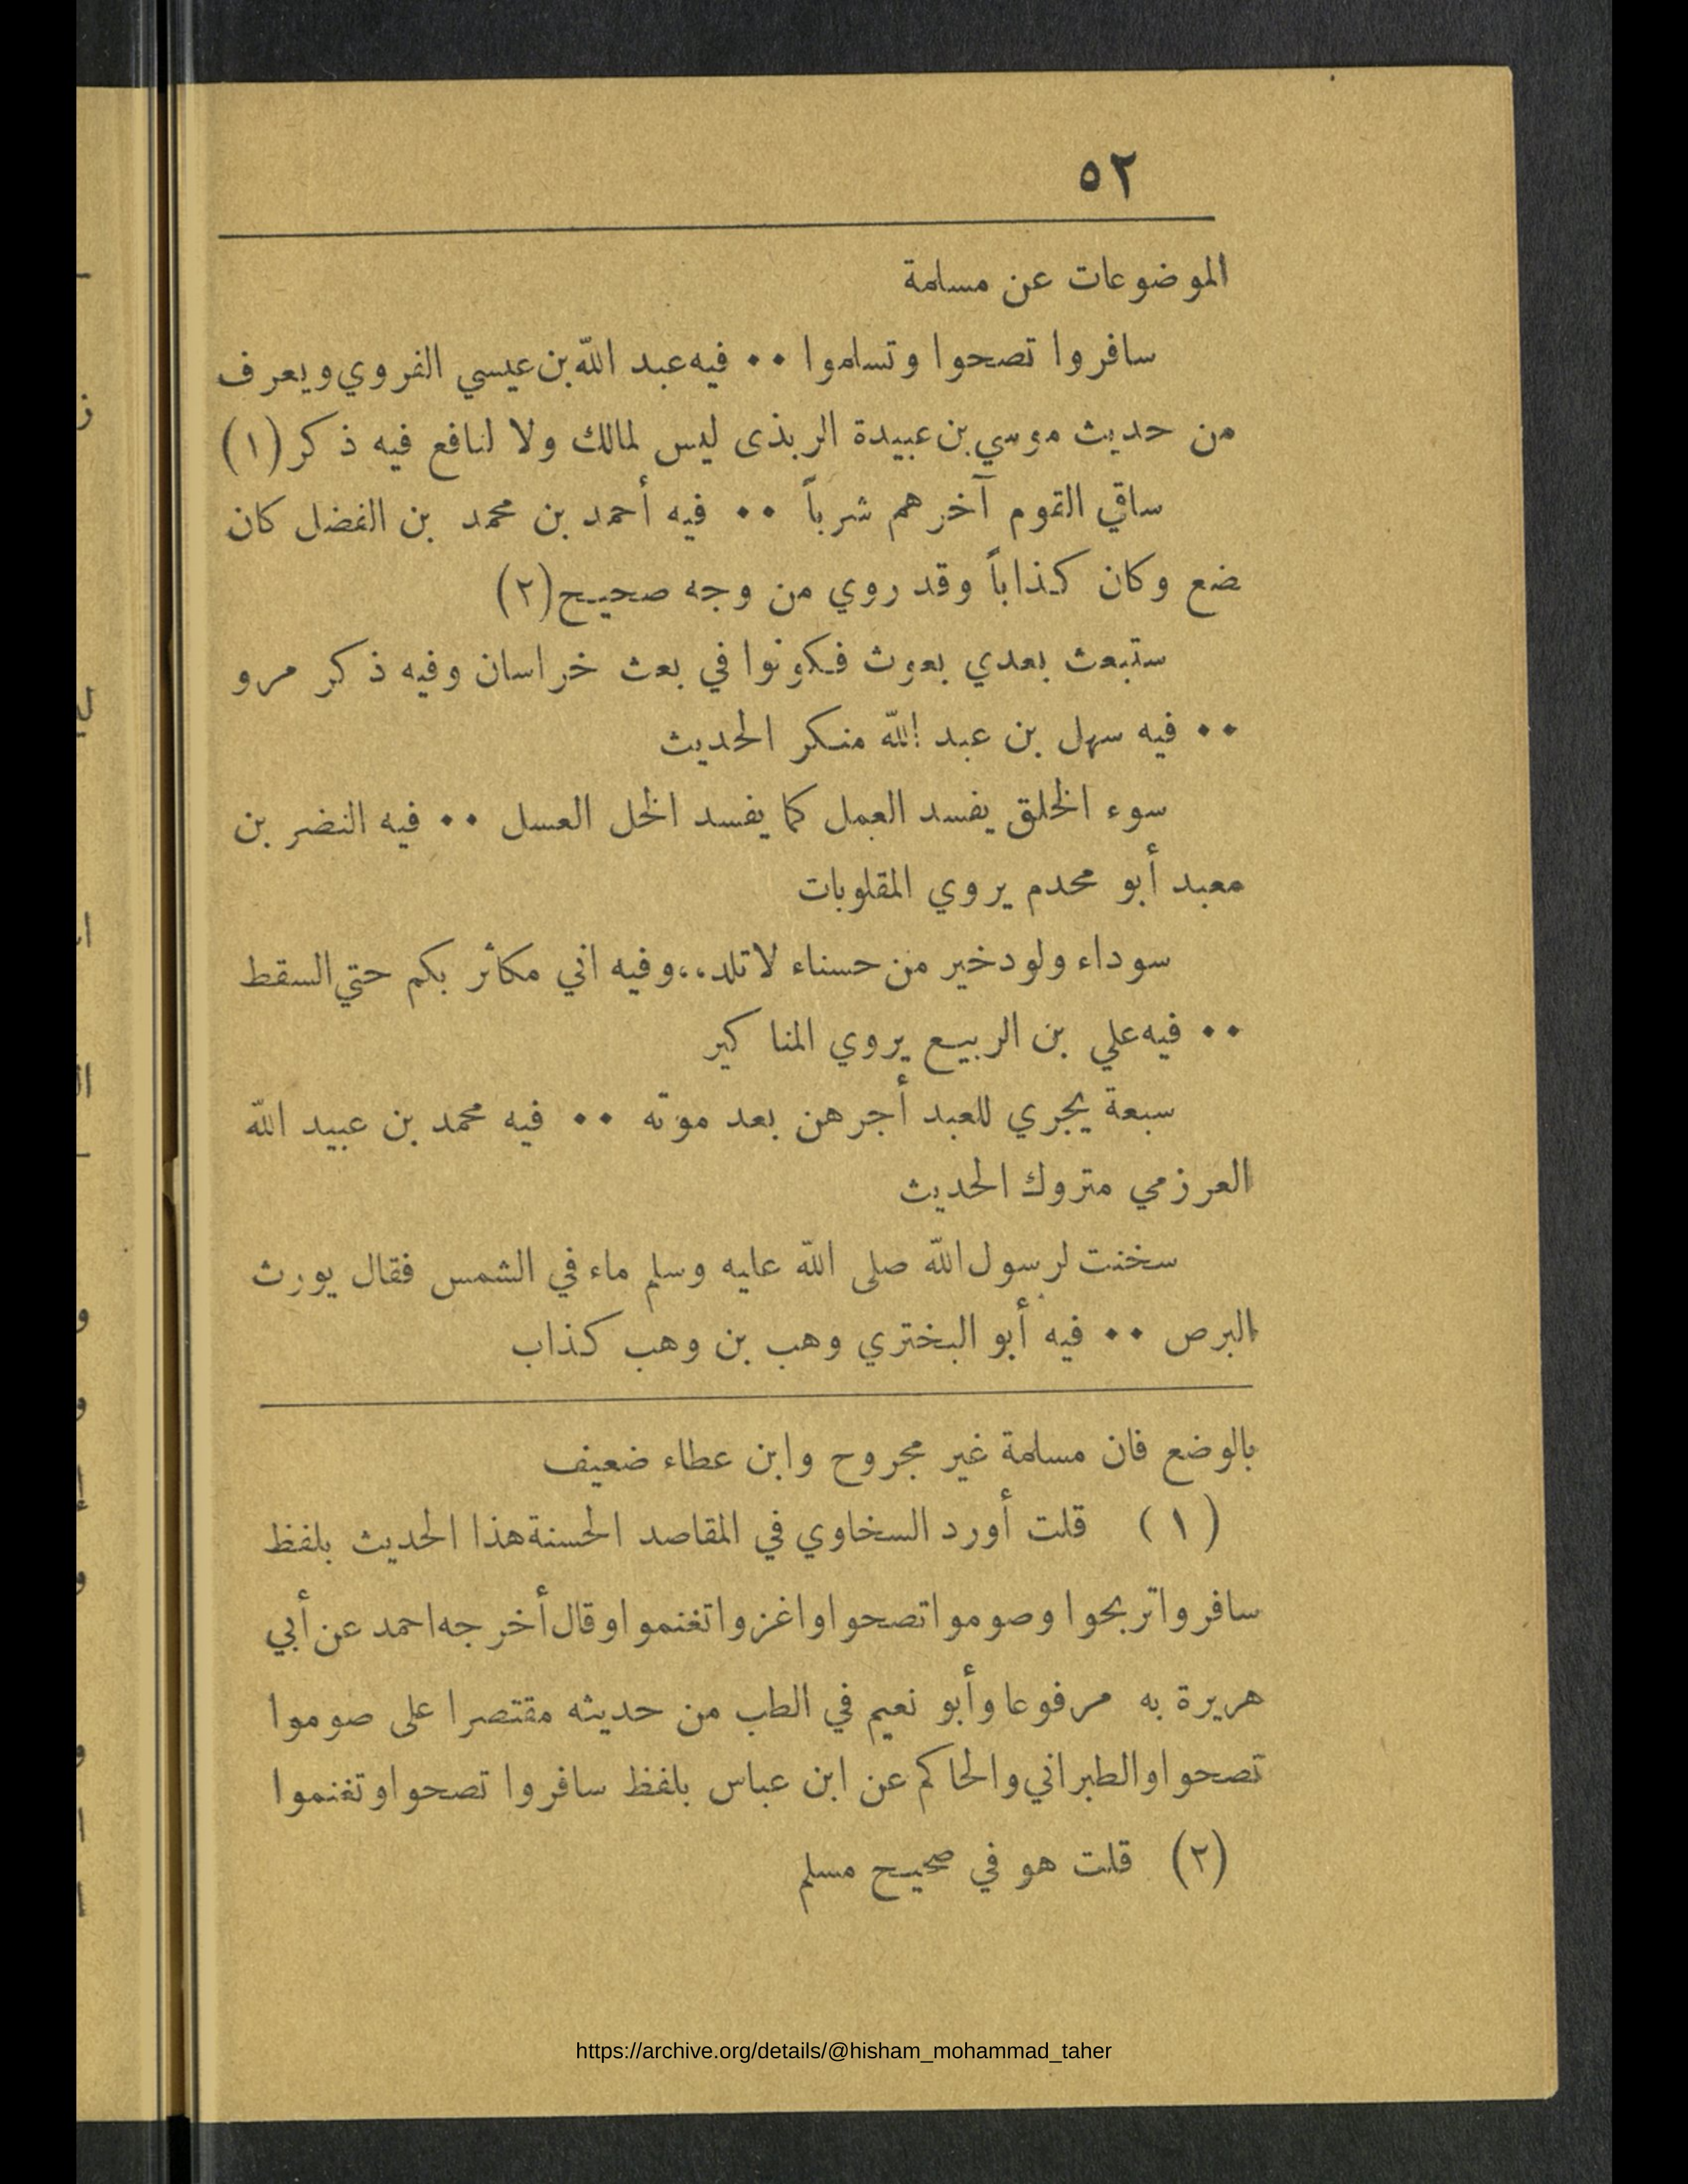 ٥٢
الموضوعات عن مسلمة
سافروا تصحوا وتسلموا ٠٠ فيه عبد الله بن عيسي الفروي ويعرف
من حديث موسي بن عبيدة الربذى ليس لمالك ولا لنافع فيه ذكر (١)
ساقي القوم آخرهم شرباً ٠٠ فيه أحمد بن محمد بن الفضل كان
يضع وكان كذاباً وقد روي من وجه صحيح (٢)
ستبعث بعدي بعوث فكونوا في بعث خراسان وفيه ذكر مرو
٠٠ فيه سهل بن عبد الله منكر الحديث
سوء الخلق يفسد العمل كما يفسد الخل العسل ٠٠ فيه النضر بن
معبد أبو محدم يروي المقلوبات
سوداء ولود خير من حسناء لا تلد ،، وفيه اني مكاثر بكم حتي السقط
٠٠ فيه علي بن الربيع يروي المناكير
سبعة يجري للعبد أجرهن بعد موته ٠٠ فيه محمد بن عبيد الله
العرزمي متروك الحديث
سخنت لرسول الله صلى الله عليه وسلم ماء في الشمس فقال يورث
البرص ٠٠ فيه أبو البختري وهب بن وهب كذاب
بالوضع فان مسلمة غير مجروح وابن عطاء ضعيف
(١) قلت أورد السخاوي في المقاصد الحسنة هذا الحديث بلفظ
سافروا تربحوا وصوموا تصحوا واغزوا تغنموا وقال أخرجه احمد عن أبي
هريرة به مرفوعا وأبو نعيم في الطب من حديثه مقتصرا على صوموا
تصحوا والطبراني والحاكم عن ابن عباس بلفظ سافروا تصحوا وتغنموا
(٢) قلت هو في صحيح مسلم
https://archive.org/details/@hisham_mohammad_taher